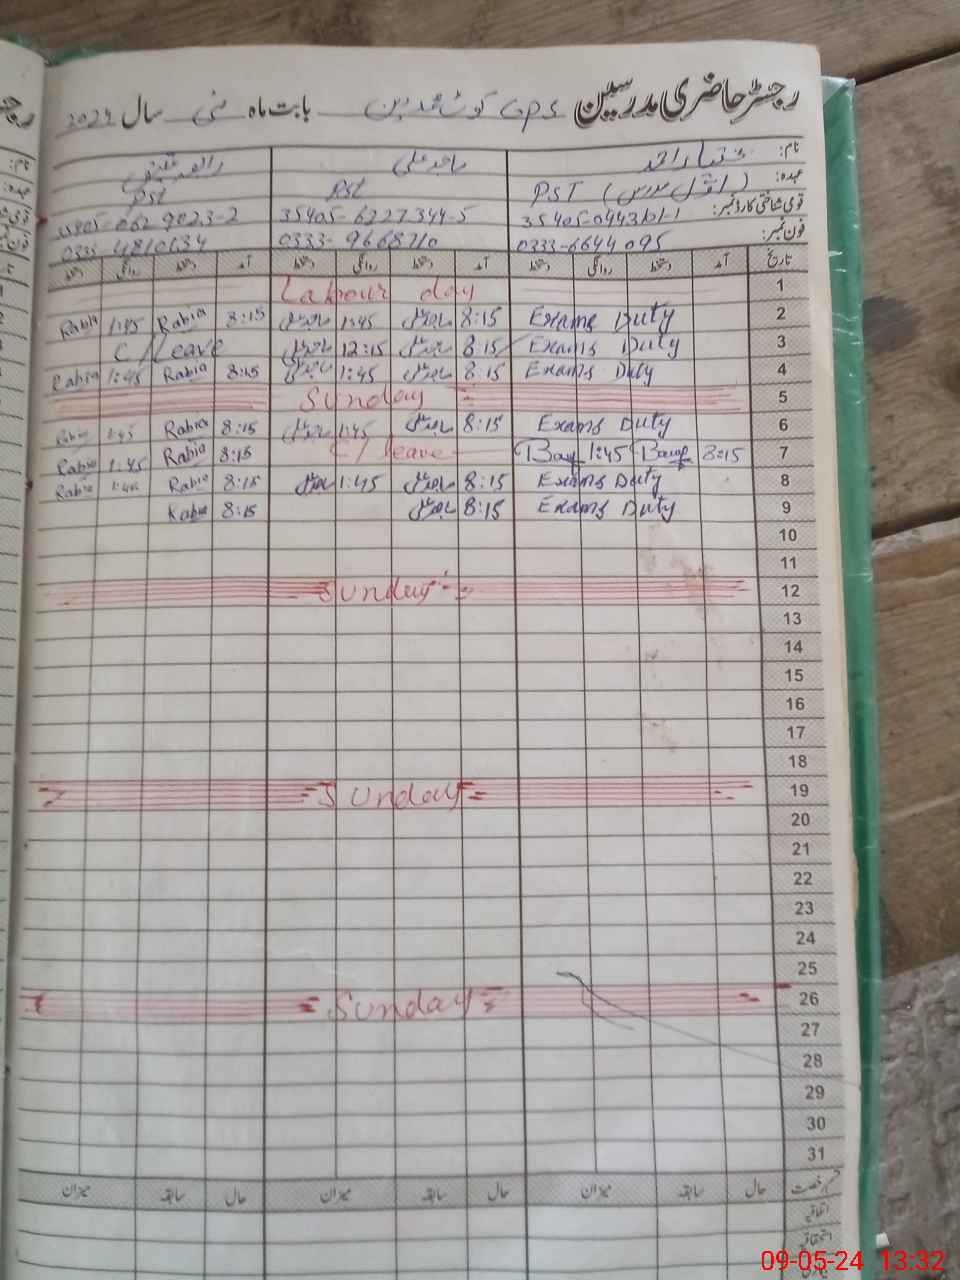 رجسٹر حاضری مدرسین GPS کوٹ محمد بابت ماہ مئی سال 2024
نام: مختیار احمد ماجد علی رابعہ
عہدہ: PST ( PST PST
قومی شناختی کارڈ نمبر: 35405-6227344-5 35405-0629023-2
فون نمبر: 0333-6644095 0333-9668710 0335 4810134
تاریخ آمد دستخط روانگی دستخط آمد دستخط روانگی دستخط آمد دستخط روانگی دستخط
Labour day 1
Rabia 1:45 Rabia 8:15 1:45 8:15 Exams Duty 2
C/Leave 12:15 8:15 Exams Duty 3
Rabia 1:45 Rabia 8:15 1:45 8:15 Exams Duty 4
Sunday 5
Rabia 1:45 Rabia 8:15 1:45 8:15 Exams Duty 6
Rabia 1:45 Rabia 8:15 C/leave 1:45 8:15 7
Rabia 1:45 Rabia 8:15 1:45 8:15 Exams Duty 8
Rabia 8:15 8:15 Exams Duty 9
10
11
Sunday 12
13
14
15
16
17
18
Sunday 19
20
21
22
23
24
25
Sunday 26
27
28
29
30
31
قسم رخصت حال سابقہ میزان حال سابقہ میزان حال سابقہ میزان
اتفاقیہ
استحقاقیہ
09-05-24 13:32